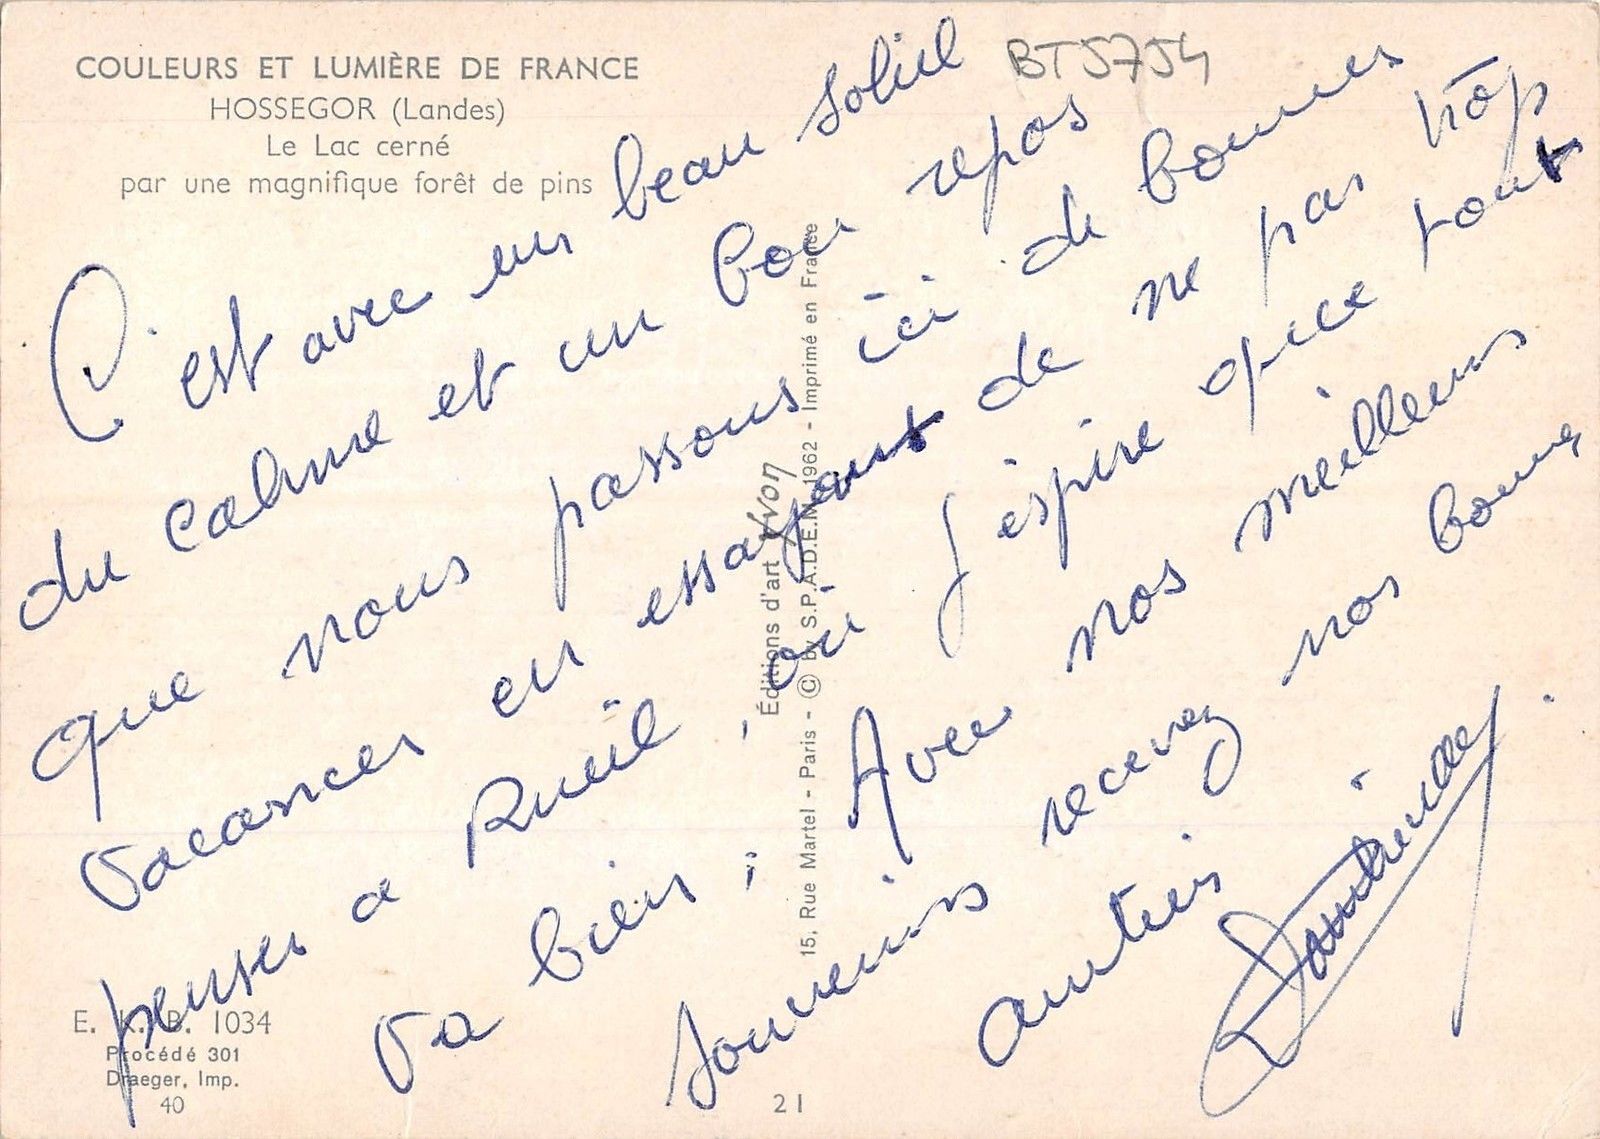 COULEURS ET LUMIÈRE DE FRANCE
HOSSEGOR (Landes)
Le Lac cerné
par une magnifique forêt de pins
BT5754
C'est avec un beau soliel
du calme et un bon repos
que nous passons ici de bonnes
vacances en essayant de ne pas trop
penser a Rueil, où j'espire que tout
va bien ; Avec nos meilleurs
souvenirs recevez nos bonne
amitiés
Éditions d'art Yvon
15, Rue Martel - Paris - © by S.P.A.D.E.M. 1962 - Imprimé en France
E. K. B. 1034
Procédé 301
Draeger, Imp.
40
21